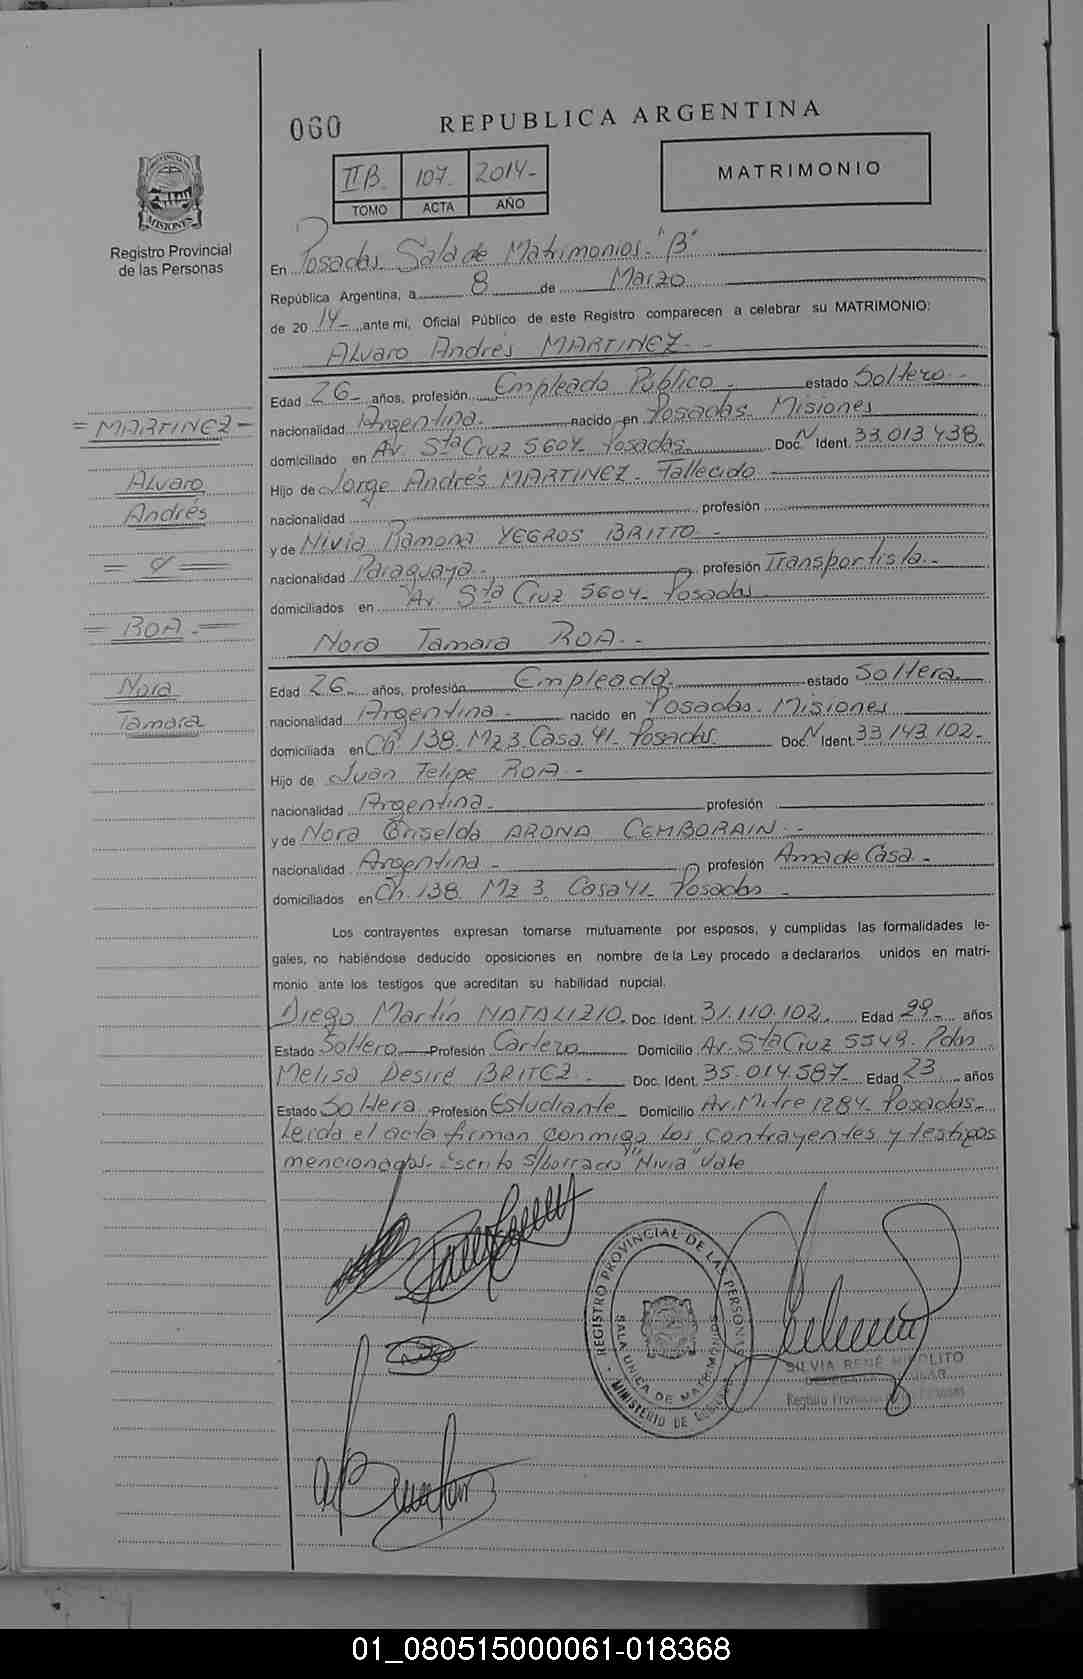 060
REPUBLICA ARGENTINA
II B. 107. 2014-
TOMO ACTA AÑO
MATRIMONIO
PROVINCIA DE
MISIONES
Registro Provincial
de las Personas
En Posadas Sala de Matrimonios- "B"
República Argentina, a 8 de Marzo
de 20 14- ante mí, Oficial Público de este Registro comparecen a celebrar su MATRIMONIO:
Alvaro Andrés MARTINEZ.-
Edad 26- años, profesión Empleado Público- estado Soltero-
nacionalidad Argentina. nacido en Posadas- Misiones
domiciliado en Av. Sta Cruz 5604- Posadas. Doc. N Ident. 33.013.438
Hijo de Jorge Andrés MARTINEZ- Fallecido
nacionalidad profesión
y de Nivia Ramona YEGROS BRITTO-
nacionalidad Paraguaya- profesión Transportista.-
domiciliados en Av. Sta Cruz 5604- Posadas
Nora Tamara ROA.-
Edad 26- años, profesión Empleada. estado Soltera.
nacionalidad Argentina.- nacido en Posadas- Misiones
domiciliada en Ch 138- Mz 3 Casa 41- Posadas. Doc. N Ident. 33.143.102-
Hijo de Juan Felipe ROA.-
nacionalidad Argentina- profesión
y de Nora Griselda ARONA CEMBORAIN.-
nacionalidad Argentina- profesión Ama de Casa.-
domiciliados en Ch. 138. Mz 3. Casa 41- Posadas-
Los contrayentes expresan tomarse mutuamente por esposos, y cumplidas las formalidades le-
gales, no habiéndose deducido oposiciones en nombre de la Ley procedo a declararlos unidos en matri-
monio ante los testigos que acreditan su habilidad nupcial.
Diego Martín NATALIZIO. Doc. Ident. 31.110.102. Edad 29- años
Estado Soltero Profesión Cartero Domicilio Av. Sta Cruz 5549. Pdas.
Melisa Desiré BRITEZ.- Doc. Ident. 35.014.587- Edad 23 años
Estado Soltera Profesión Estudiante- Domicilio Av. Mitre 1284- Posadas-
Leida el acta firman conmigo los contrayentes y testigos
mencionados- Escrito s/borrado "Nivia" Vale
= MARTINEZ -
Alvaro
Andrés
= y =
= ROA.- =
Nora
Tamara
REGISTRO PROVINCIAL DE LAS PERSONAS
SALA UNICA DE MATRIMONIOS
MINISTERIO DE GOBIERNO
SILVIA RENÉ HIPOLITO
01_080515000061-018368